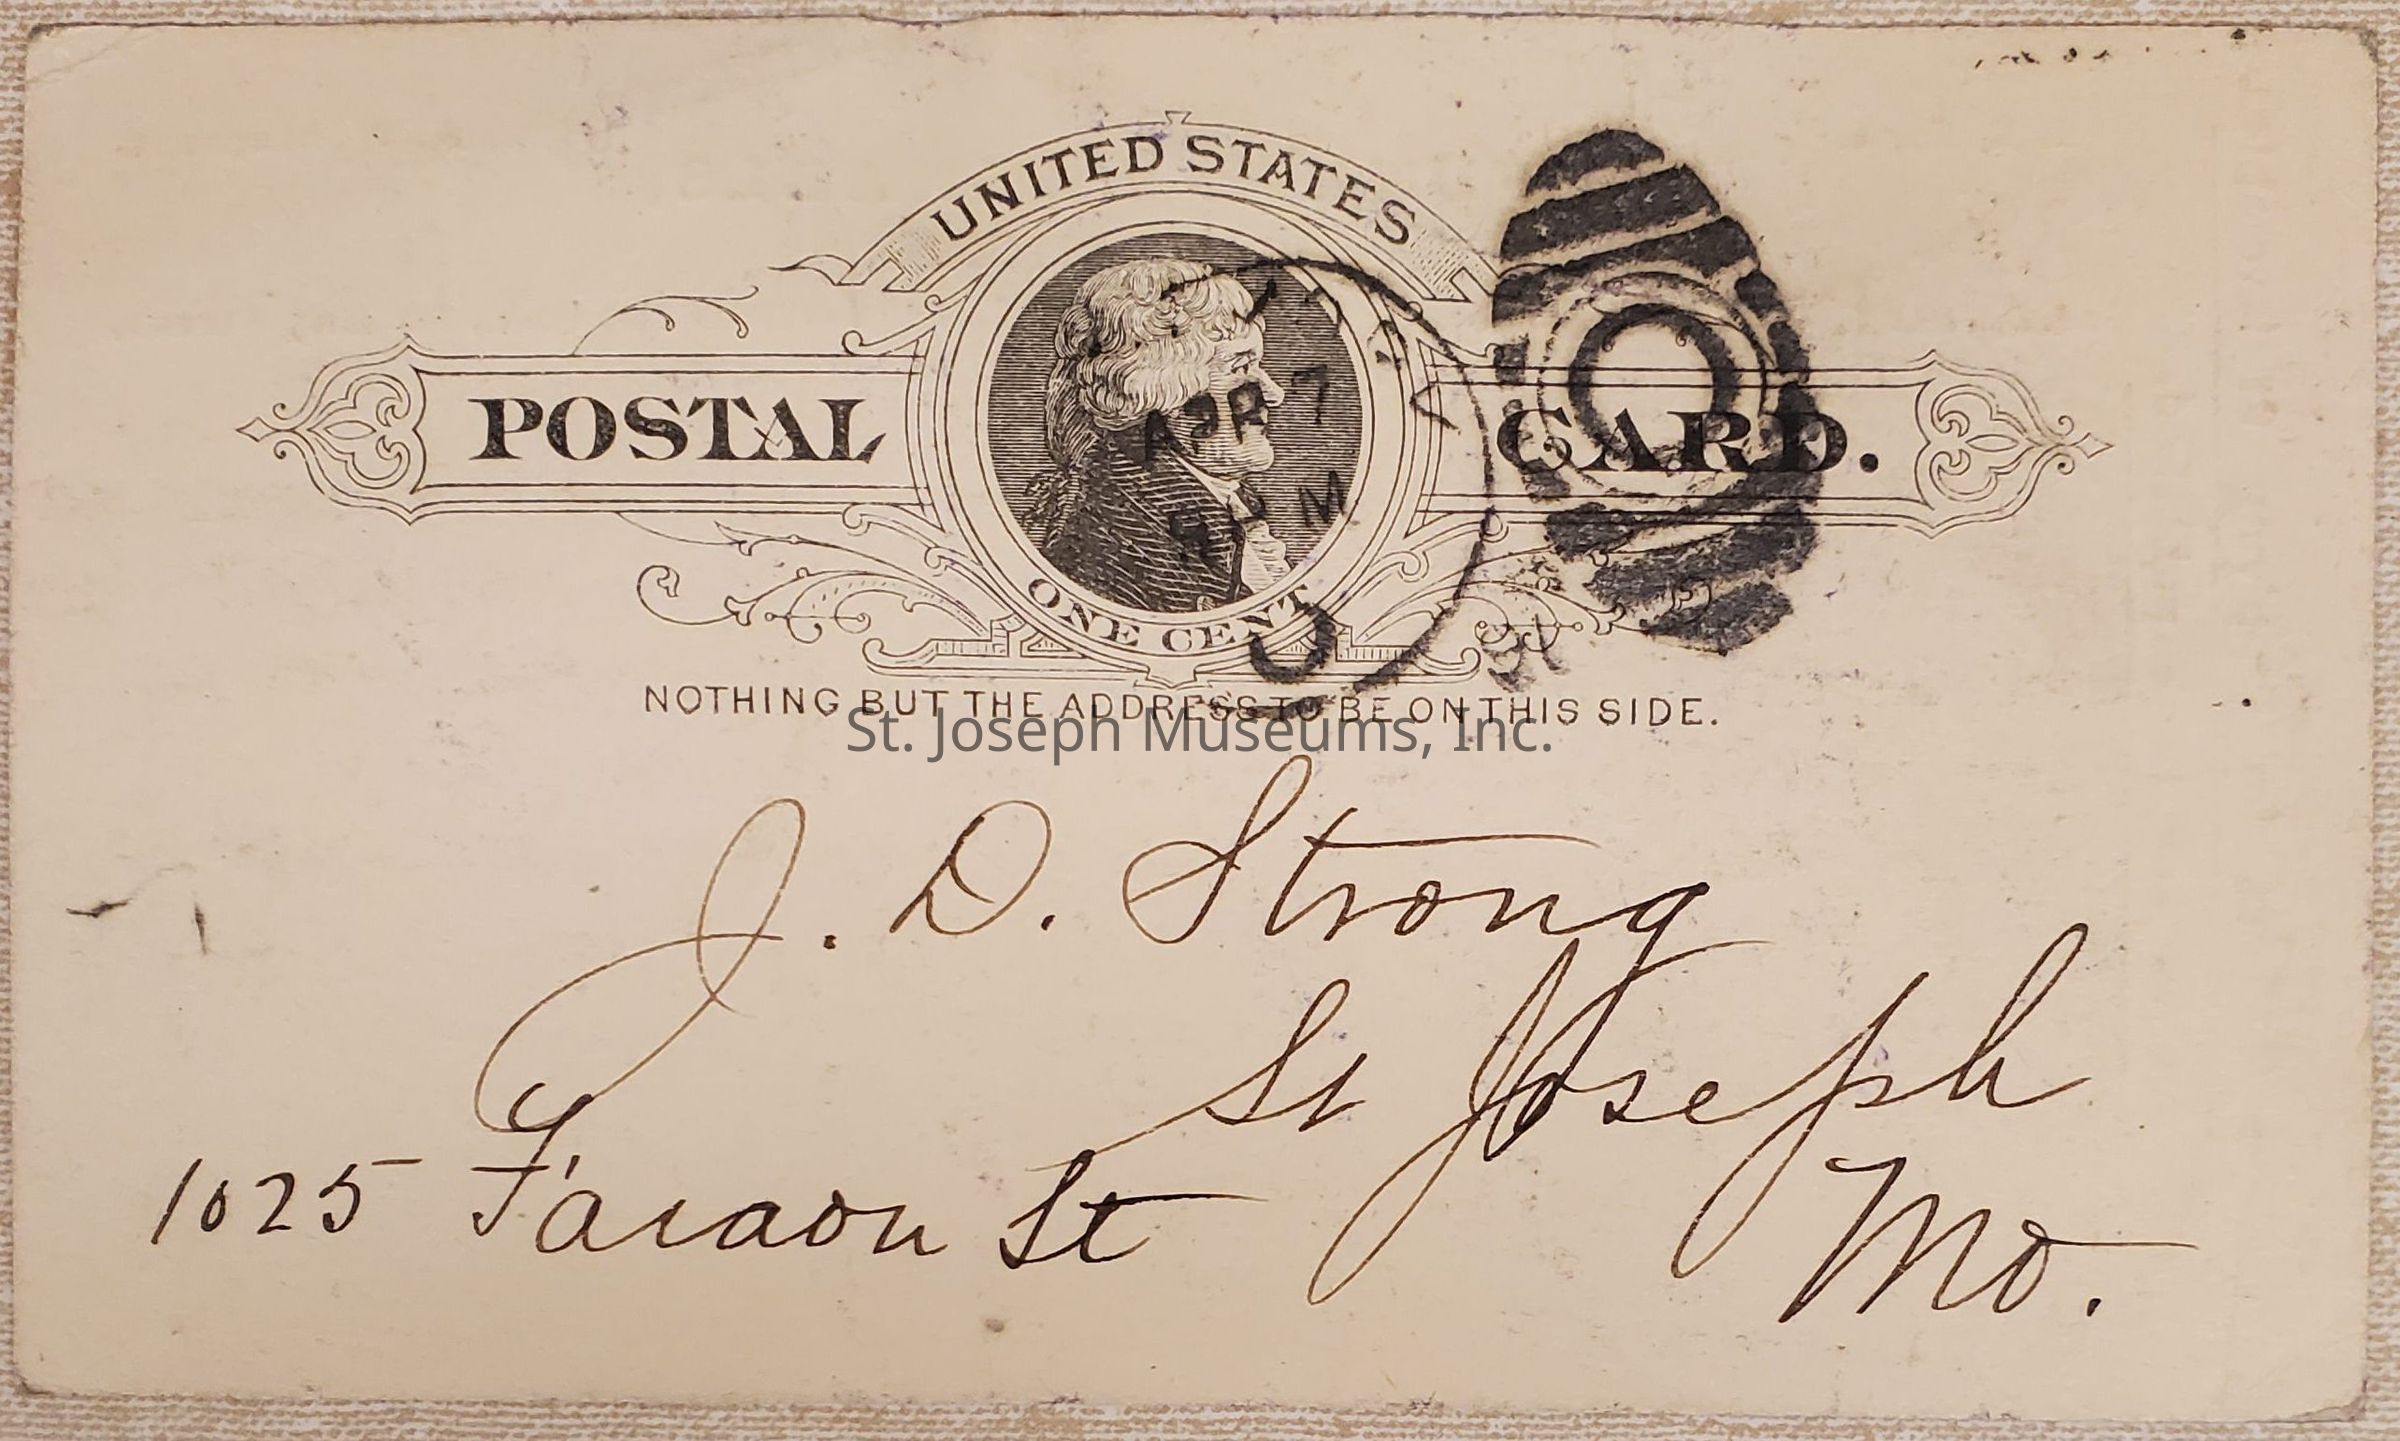 UNITED STATES
POSTAL CARD.
APR 7
M
ONE CENT
NOTHING BUT THE ADDRESS TO BE ON THIS SIDE.
St. Joseph Museums, Inc.
J. D. Strong
St Joseph
1025 Faraon St
Mo.